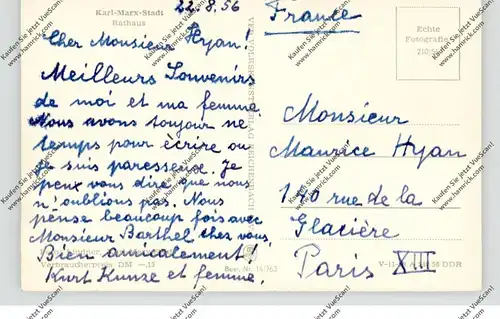 Karl-Marx-Stadt
Rathaus
22.8.56
Cher Monsieur Hyan!
Meilleurs Souvenirs
de moi et ma femme.
Nous avons toujour ne
temps pour écrire ou
je suis paresseux. Je
peux vous dire que nous
n'oublions pas. Nous
pense beaucoup fois avec
Monsieur Barthel chez vous.
Bien amicalement!
Kurt Kunze et femme.
Verbraucherpreis DM —,15
Best.-Nr. 14/763
France
Echte
Fotografie
Monsieur
Maurice Hyan
170 rue de la
Glacière
Paris XIII
DDR
Kaufen Sie jetzt VueScan!
www.hamrick.com